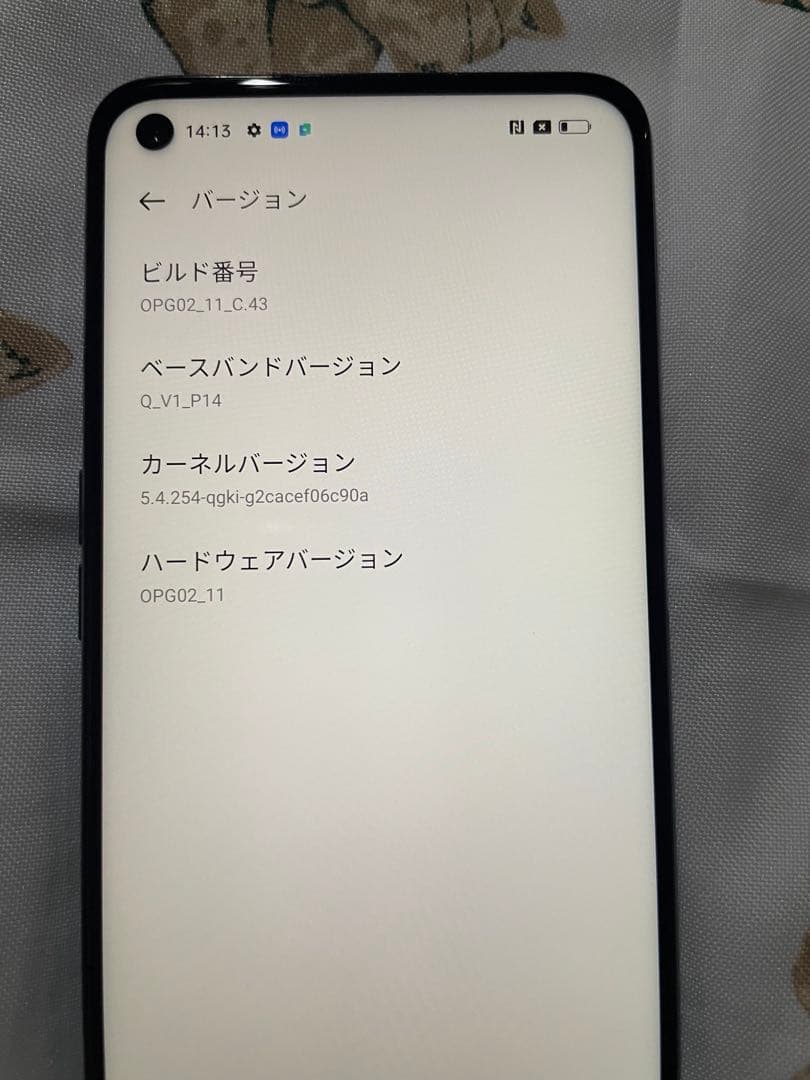 14:13
バージョン
ビルド番号
OPG02_11_C.43
ベースバンドバージョン
Q_V1_P14
カーネルバージョン
5.4.254-qgki-g2cacef06c90a
ハードウェアバージョン
OPG02_11